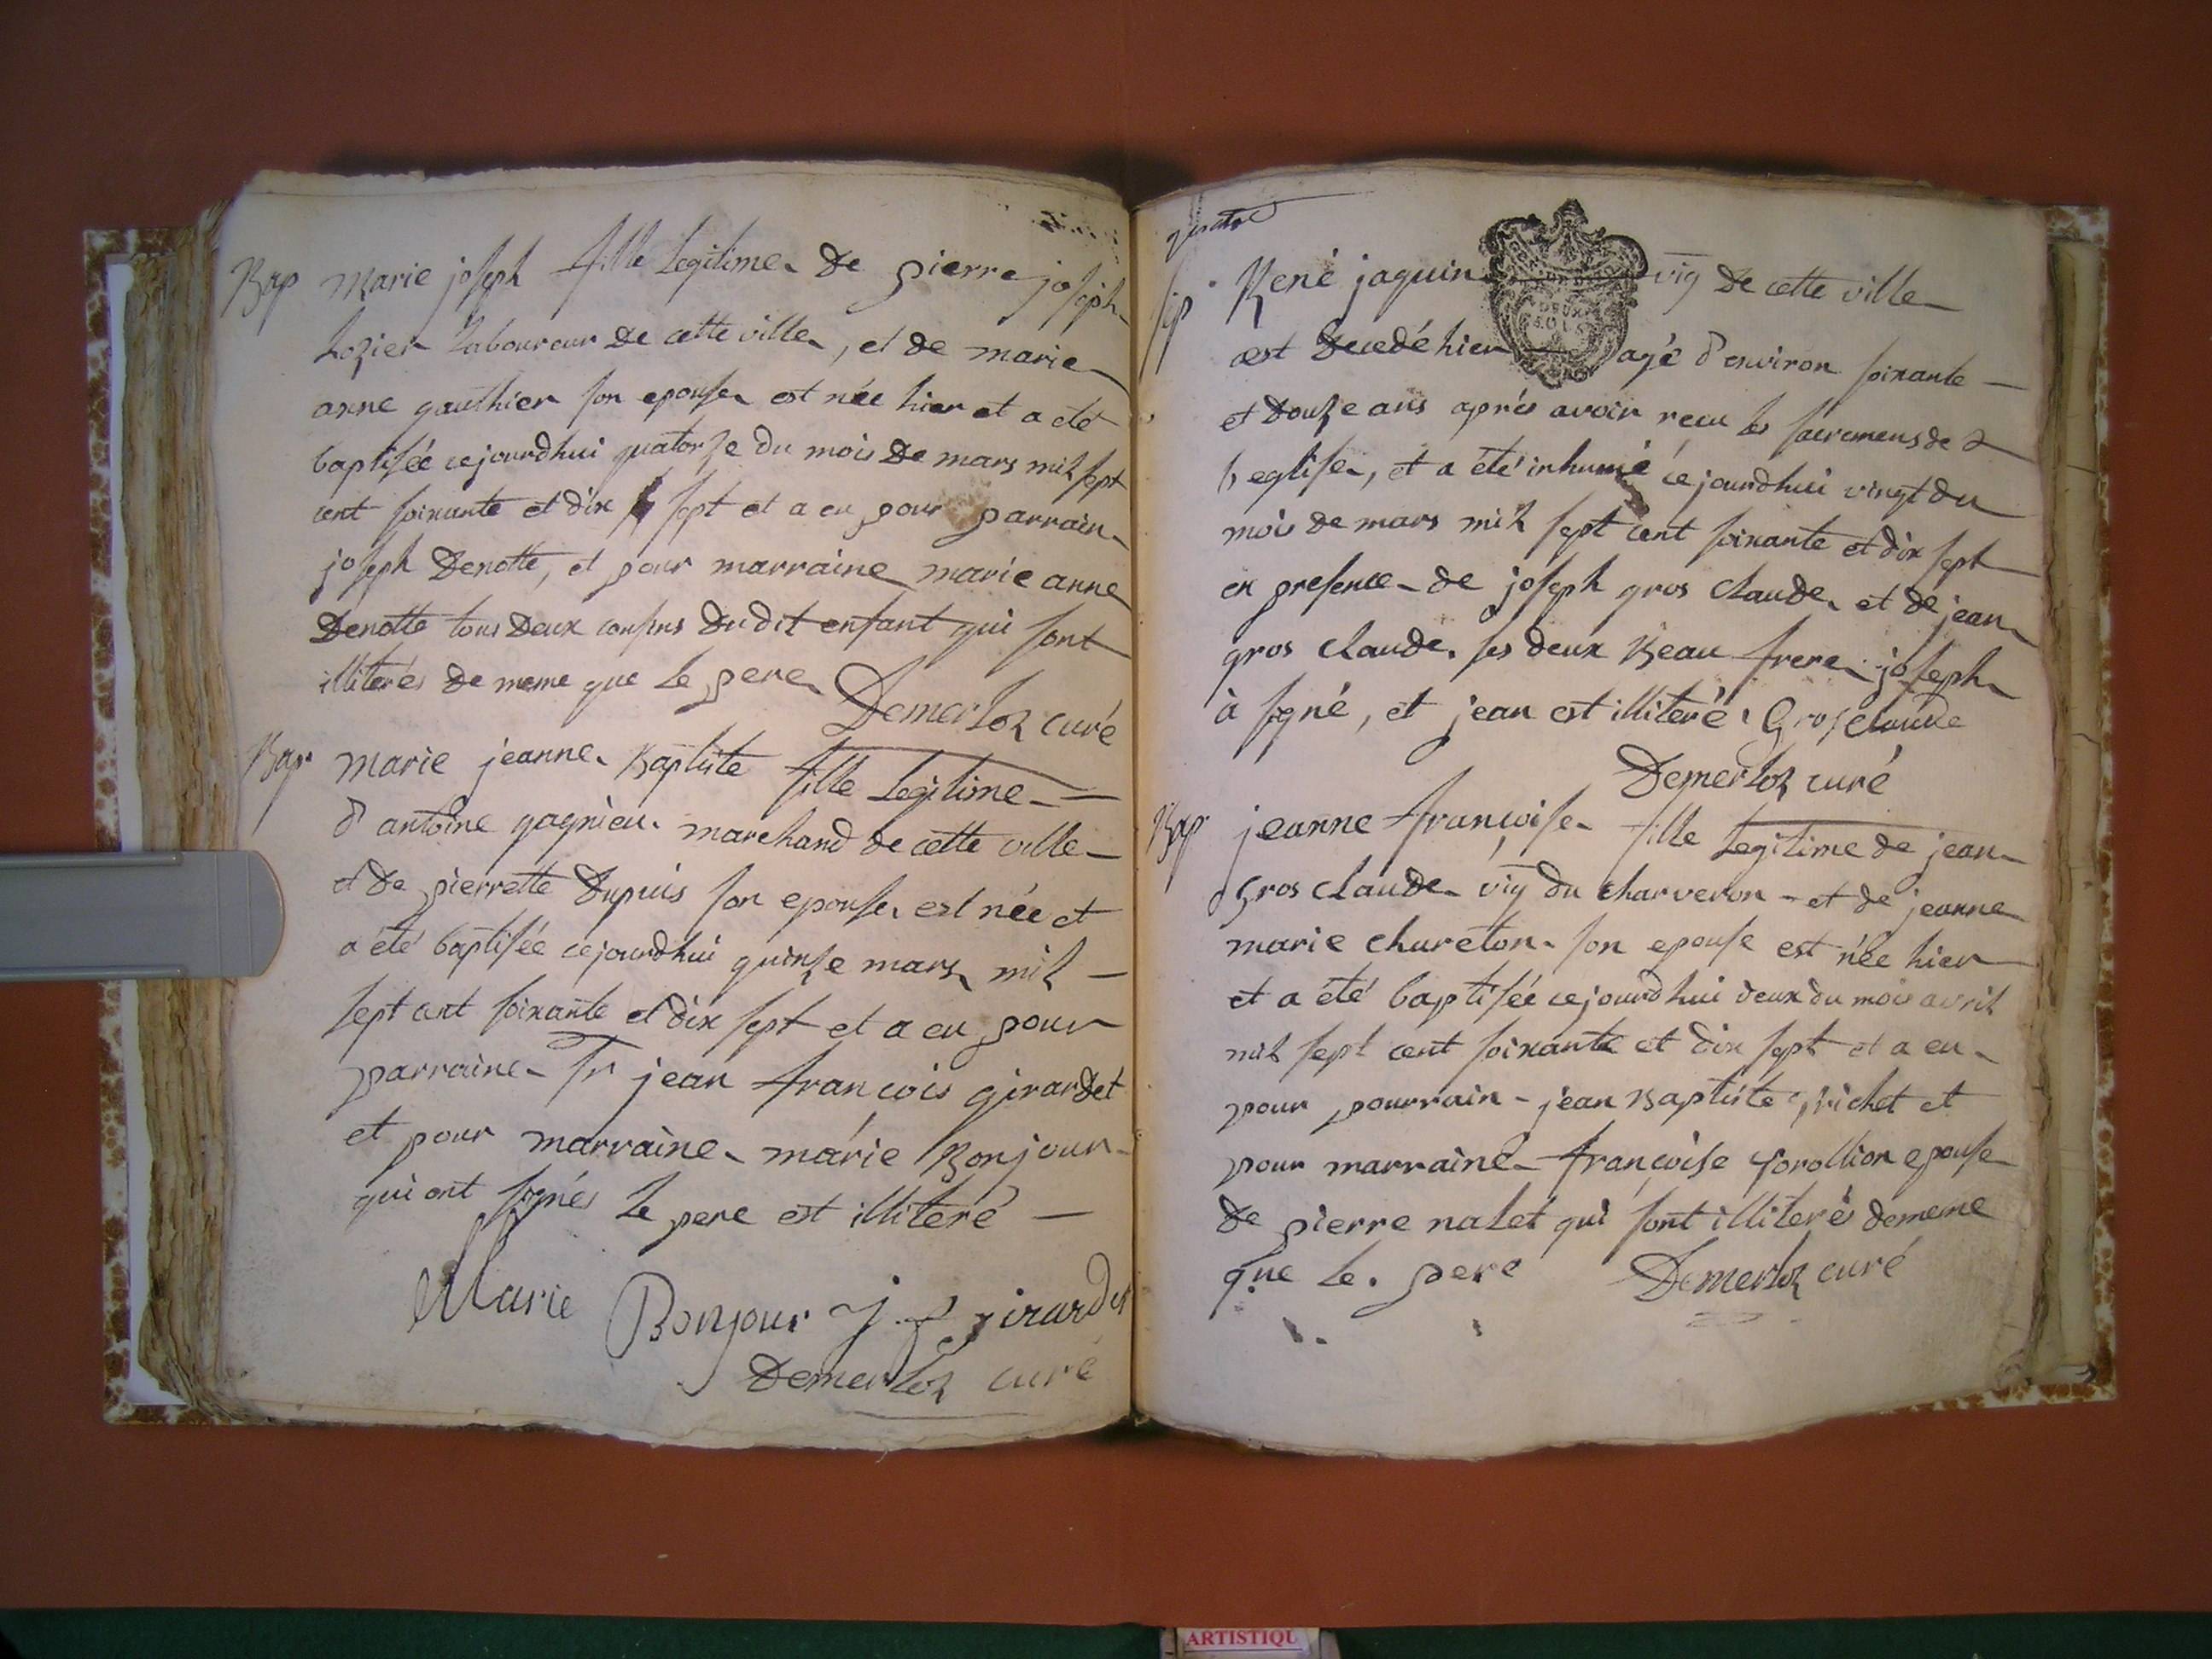 Bap Marie joseph fille legitime de pierre joseph
Lozier Laboureur de cette ville, et de marie
anne gauthier son epouse est née hier et a eté
baptisée cejourdhui quatorze du mois de mars mil sept
cent soixante et dix sept et a eu pour parrain
joseph Denotte, et pour marraine marie anne
Denotte tous deux cousins dudit enfant qui sont
illiterés de meme que le pere Demerloz curé
Bap marie jeanne Baptiste fille legitime
d'antoine gagnieu marchand de cette ville
et de pierrette Dupuis son epouse est née et
a été baptisée cejourdhui quinze mars mil
sept cent soixante et dix sept et a eu pour
parraine Sr jean françois girardet
et pour marraine marie Bonjour
qui ont signés le pere est illiteré
Marie Bonjour j. f. girardet
Demerloz curé
quatre
GEN DEUX SOLS
sep René jaquin vig de cette ville
est decedé hier agé d'environ soixante
et douze ans aprés avoir recu les sacremens de
l'eglise, et a été inhumé cejourdhui vingt du
mois de mars mil sept cent soixante et dix sept
en presence de joseph gros claude et de jean
gros claude ses deux Beau frere joseph
à signé, et jean est illiteré Grosclaude
Demerloz curé
Bap jeanne françoise fille legitime de jean
Gros claude vig du charveron et de jeanne
marie chureton son epouse est née hier
et a été baptisée cejourdhui deux du mois avril
mil sept cent soixante et dix sept et a eu
pour pourrain jean Baptiste richet et
pour marraine françoise epouse
de pierre nalet qui sont illiterés de meme
que le pere Demerloz curé
ARTISTIQU